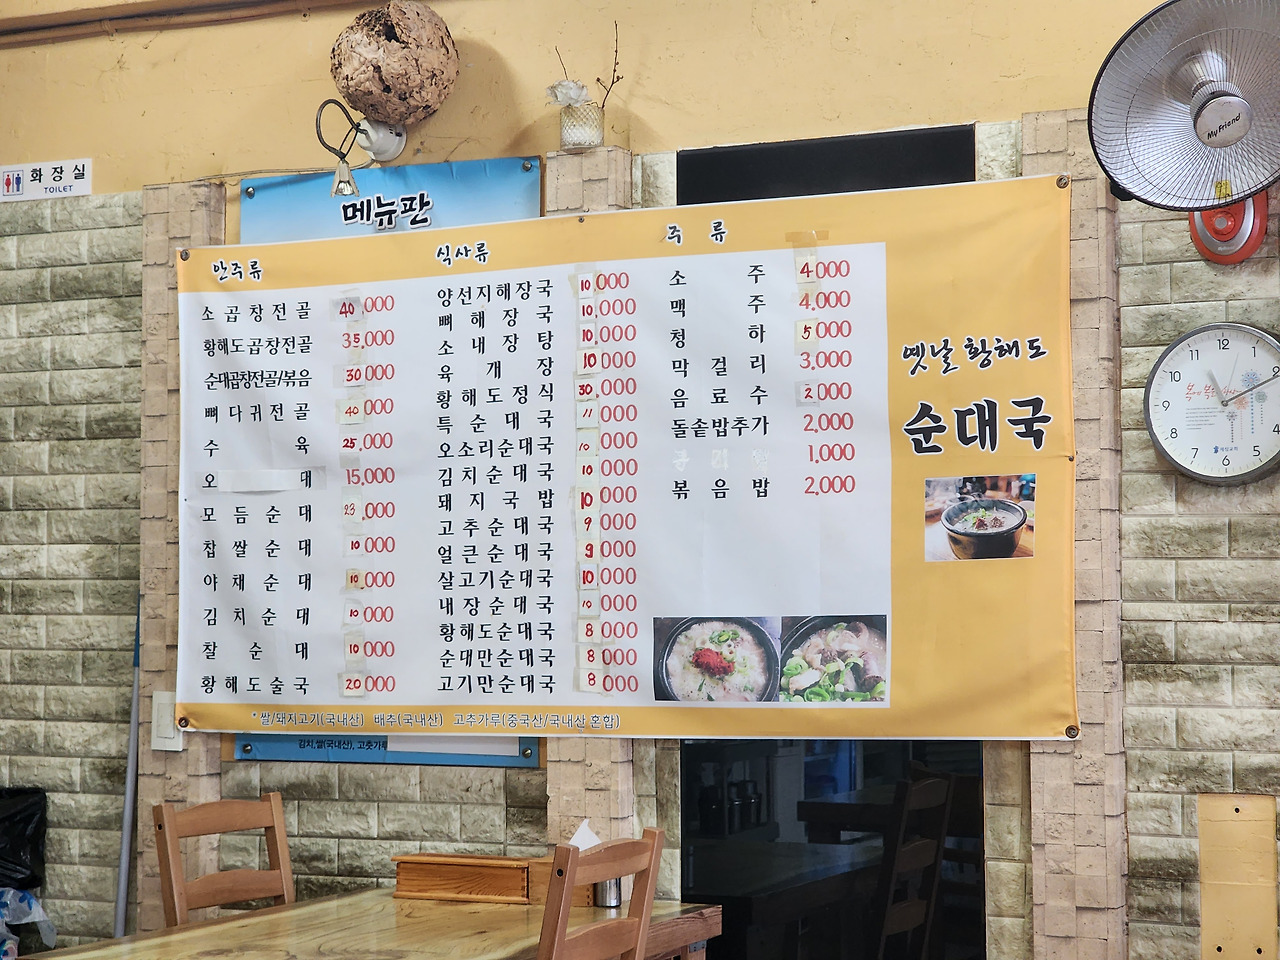 화장실
TOILET
메뉴판
안주류
소곱창전골 40,000
황해도곱창전골 35,000
순대곱창전골/볶음 30,000
뼈다귀전골 40,000
수육 25,000
오 대 15,000
모듬순대 23,000
찹쌀순대 10,000
야채순대 10,000
김치순대 10,000
찰순대 10,000
황해도술국 20,000
식사류
양선지해장국 10,000
뼈해장국 10,000
소내장탕 10,000
육개장 10,000
황해도정식 30,000
특순대국 11,000
오소리순대국 10,000
김치순대국 10,000
돼지국밥 10,000
고추순대국 9,000
얼큰순대국 9,000
살고기순대국 10,000
내장순대국 10,000
황해도순대국 8,000
순대만순대국 8,000
고기만순대국 8,000
주류
소주 4,000
맥주 4,000
청하 5,000
막걸리 3,000
음료수 2,000
돌솥밥추가 2,000
1,000
볶음밥 2,000
옛날 황해도
순대국
* 쌀/돼지고기(국내산) 배추(국내산) 고추가루(중국산/국내산 혼합)
김치,쌀(국내산), 고춧가루
My Friend
12
1
2
3
4
5
6
7
8
9
10
11